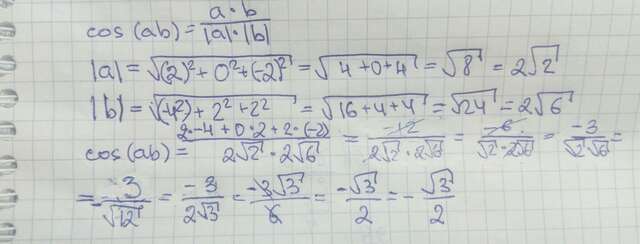 cos(ab) = a·b / |a|·|b|
|a| = √((2)² + 0² + (-2)²) = √(4+0+4) = √8 = 2√2
|b| = √((-4²) + 2² + 2²) = √(16+4+4) = √24 = 2√6
cos(ab) = 2·-4+0·2+2·(-2) / 2√2·2√6 = -12 / 2√2·2√6 = -6 / √2·2√6 = -3 / √2·√6 =
= -3 / √12 = -3 / 2√3 = -3√3 / 6 = -√3 / 2 = - √3 / 2